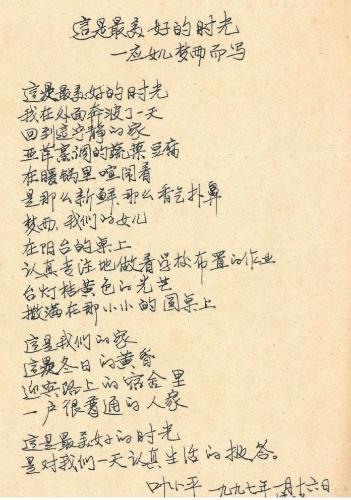 這是最美好的时光
一应女儿梦西而写
這是最美好的时光
我在外面奔波了一天
回到这宁静的家
亚萍烹调的蔬菜豆腐
在暖锅里喧闹着
是那么新鲜，那么香气扑鼻
梦西，我们的女儿
在阳台的桌上
认真专注地做着学校布置的作业
台灯桔黄色的光芒
撒满在那小小的圆桌上
這是我们的家
這是冬日的黄昏
迎宾路上的宿舍里
一户很普通的人家
這是最美好的时光
是对我们一天认真生活的报答。
叶小平 一九九七年一月十六日